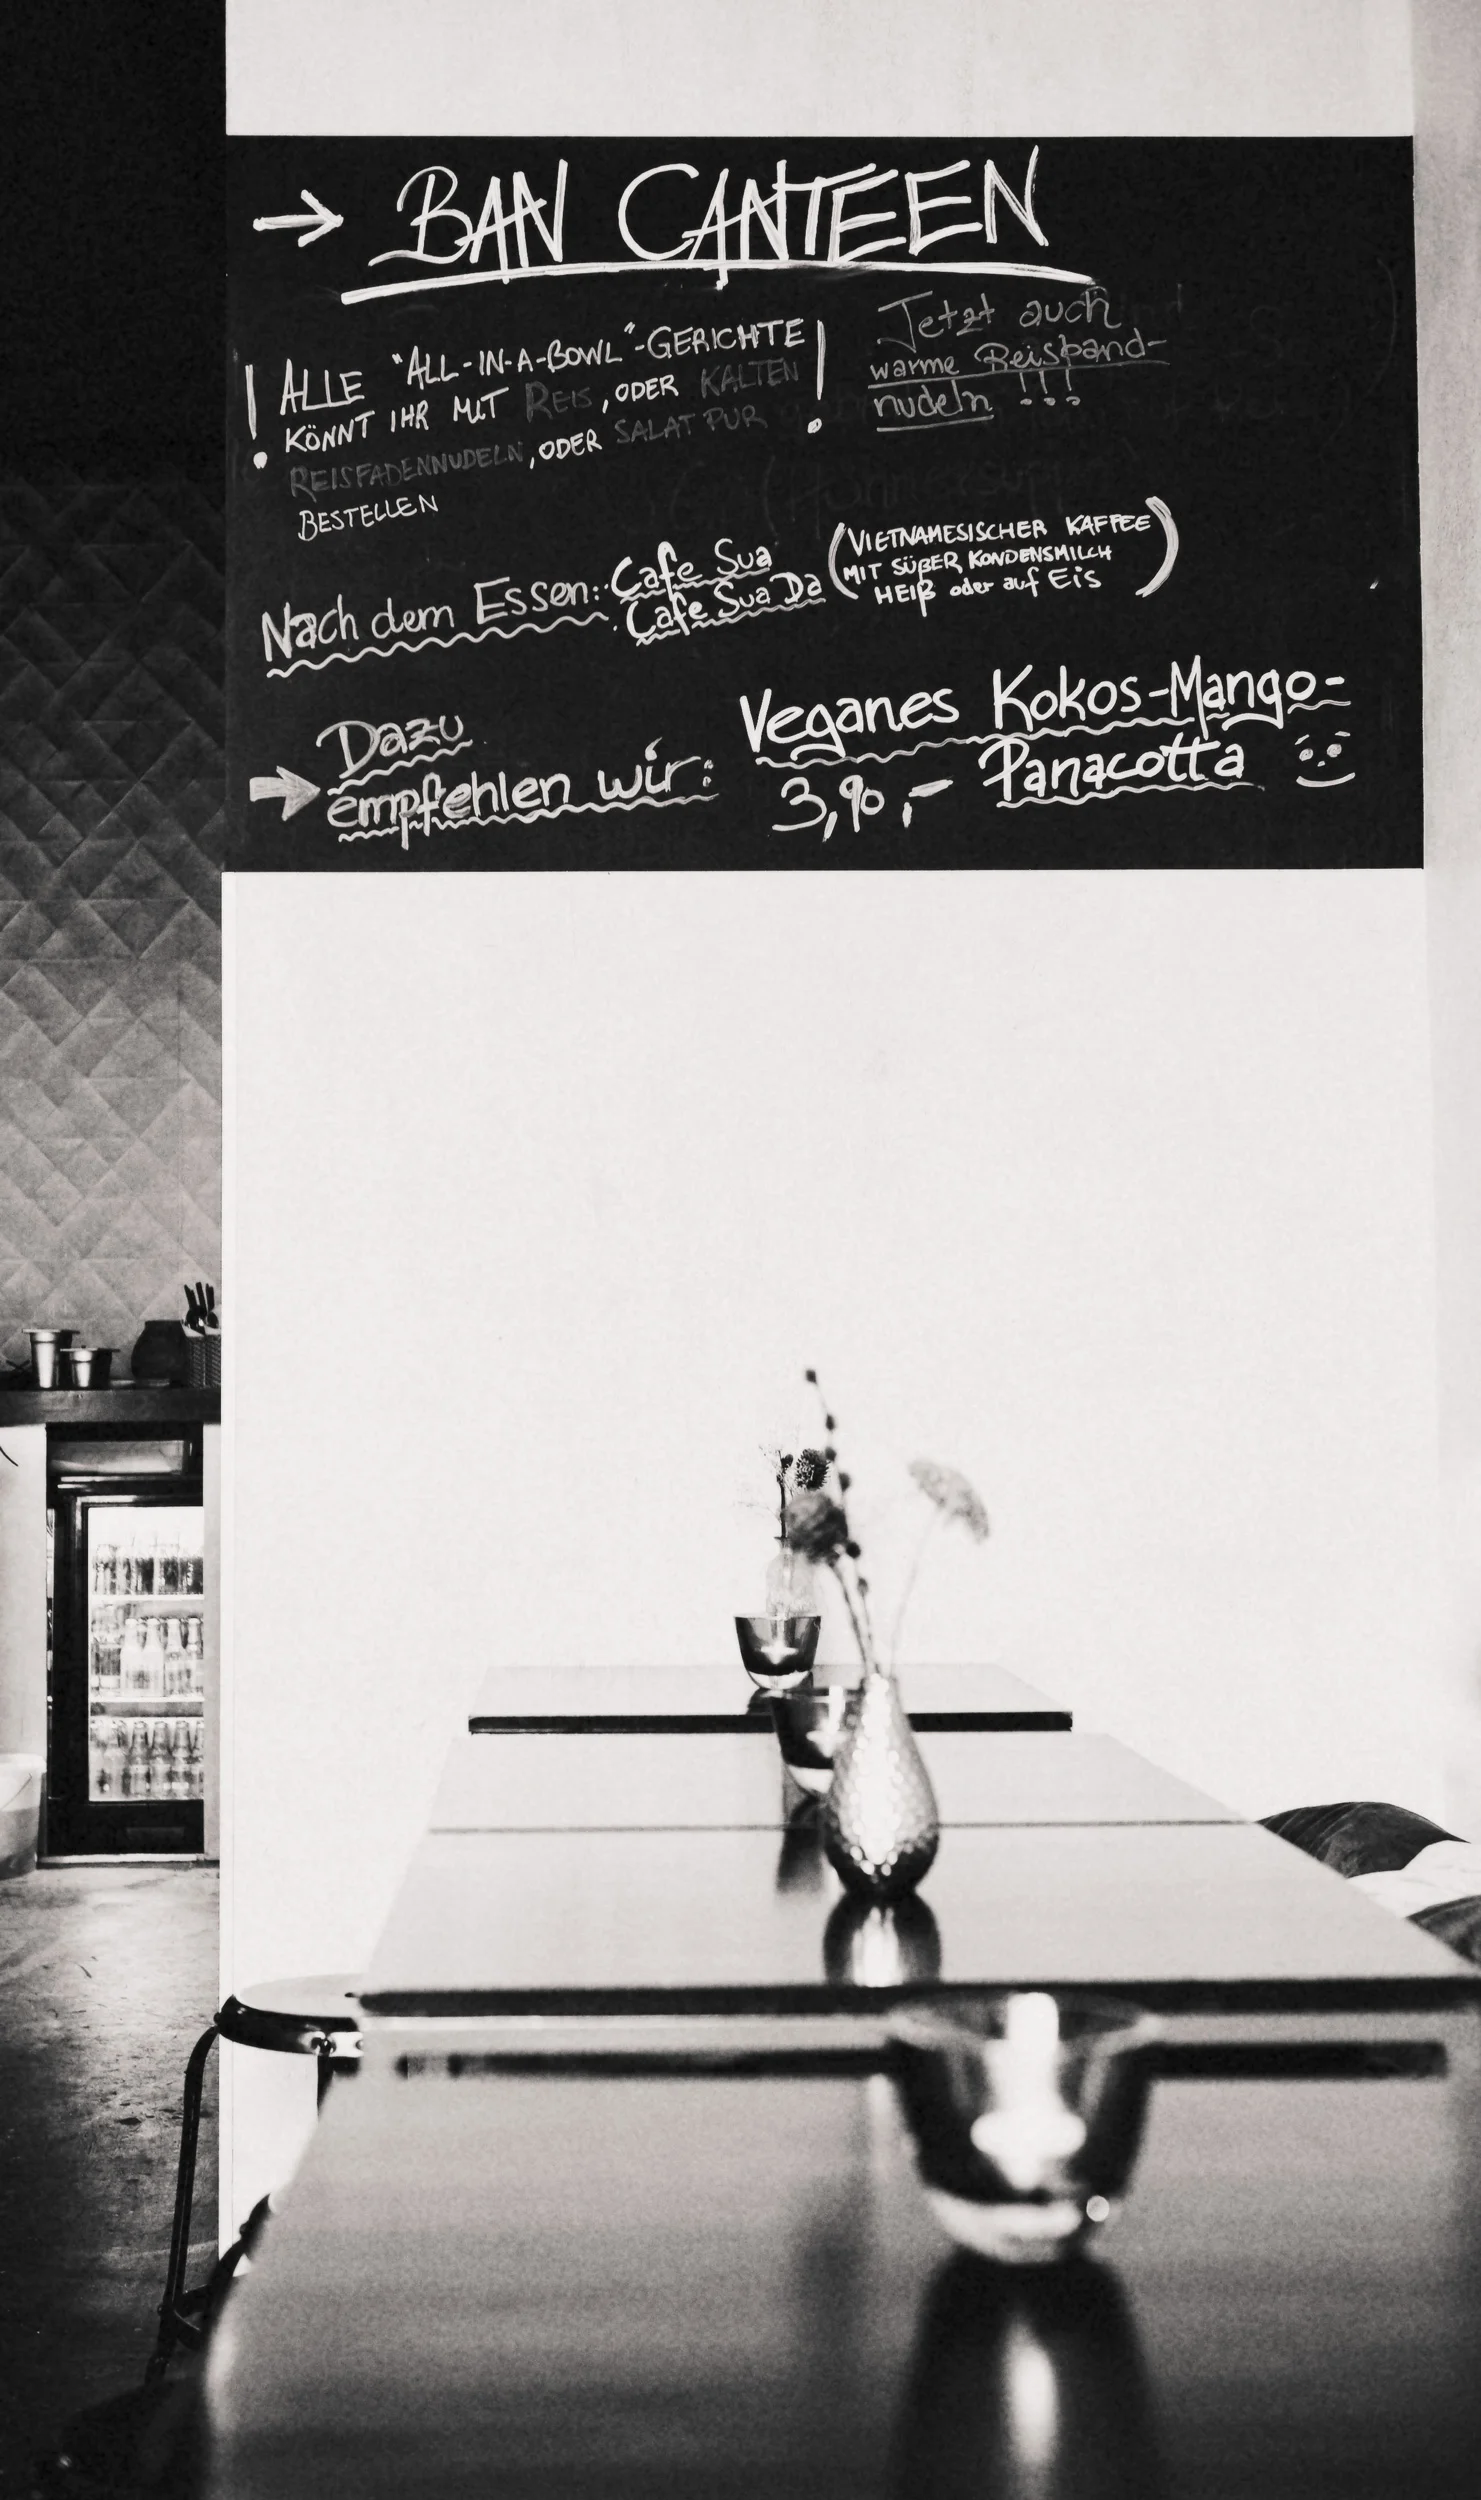 → BAN CANTEEN
! ALLE "ALL-IN-A-BOWL"-GERICHTE !
KÖNNT IHR MIT REIS, ODER KALTEN
REISFADENNUDELN, ODER SALAT PUR
BESTELLEN
Jetzt auch
warme Reisband-
nudeln !!!
Nach dem Essen: Cafe Sua
Cafe Sua Da
(VIETNAMESISCHER KAFFEE
MIT SÜßER KONDENSMILCH
HEIß oder auf EIS)
Dazu
→ empfehlen wir:
Veganes Kokos-Mango-
3,90,- Panacotta